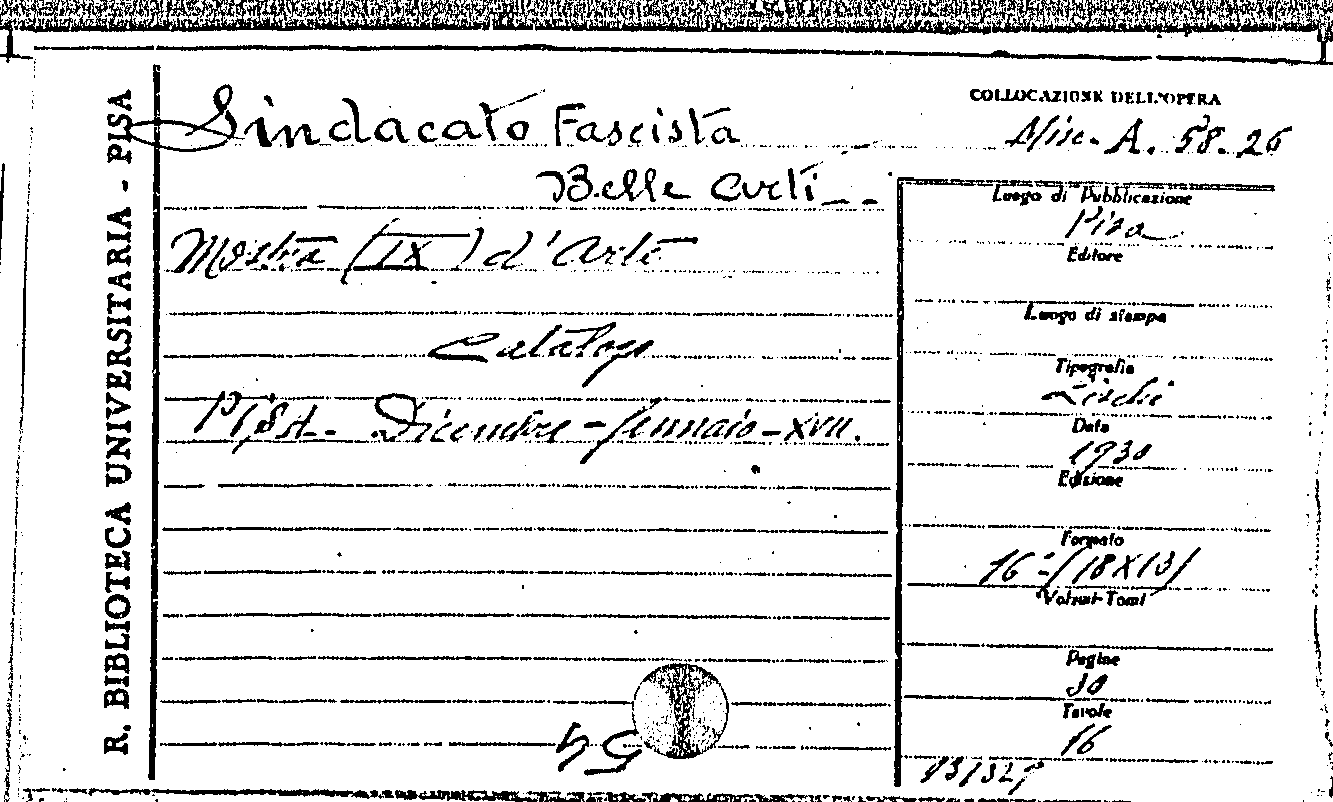 R. BIBLIOTECA UNIVERSITARIA - PISA
Sindacato Fascista
Belle Arti
Mostra (IX) d'Arte
Catalogo
Pisa. Dicembre - Gennaio - XVII.
54
COLLOCAZIONE DELL'OPERA
Misc. A. 58. 26
Luogo di Pubblicazione
Pisa
Editore
Luogo di stampa
Tipografia
Data
Edizione
Formato
16° (18X13)
Volumi-Tomi
Pagine
30
Tavole
16